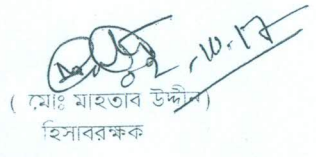 ( মোঃ মাহতাব উদ্দীন)
হিসাবরক্ষক